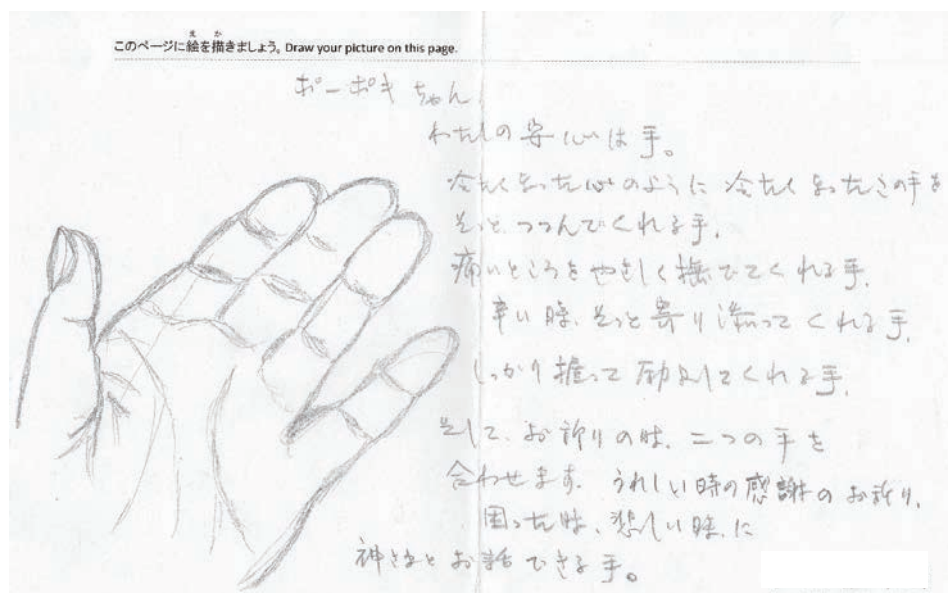 このページに絵を描きましょう。Draw your picture on this page.
ポーポキちゃん、
わたしの安心は手。
冷たくなった心のように冷たくなったこの手を
そっと、つつんでくれる手、
痛いところをやさしく撫でてくれる手、
辛い時、そっと寄り添ってくれる手、
しっかり握って励ましてくれる手、
そして、お祈りの時、二つの手を
合わせます。うれしい時の感謝のお祈り、
困った時、悲しい時、に
神さまとお話できる手。